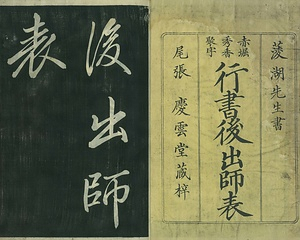 菱湖先生書
赤堀
秀香
聚字
行書後出師表
尾張 慶雲堂藏梓
後出師
表